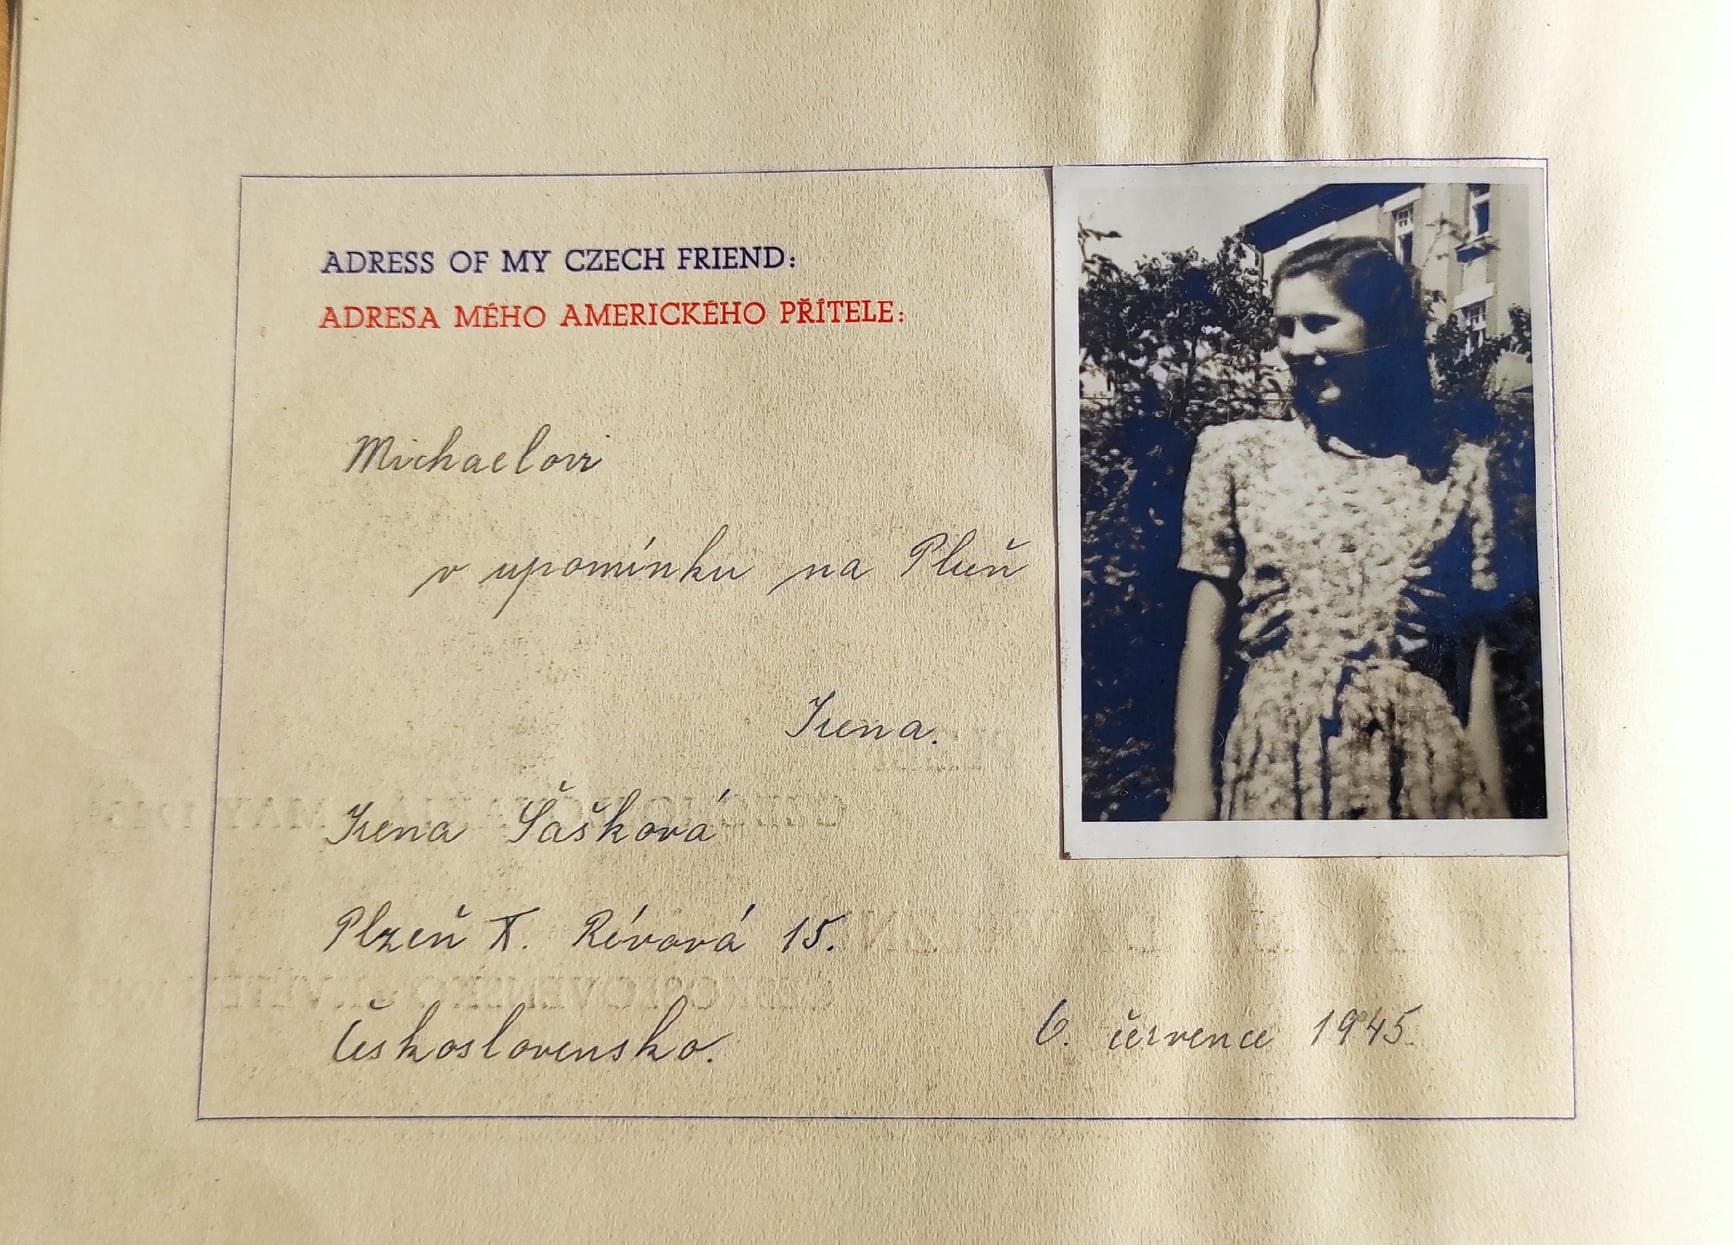 ADRESS OF MY CZECH FRIEND:
ADRESA MÉHO AMERICKÉHO PŘÍTELE:
Michaelovi
v upomínku na Plzeň
Irena.
Irena Šašková
Plzeň X. Révová 15.
Československo.
6. července 1945.